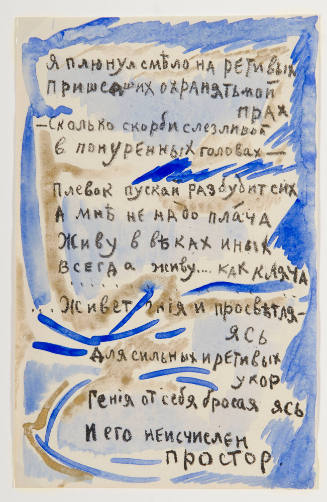 Я плюнул смѣло на ретивых
Пришедших охранять мой
прах
– Сколько скорби слезливой
в понуренных головах –
Плевок пускай разбудит сих
А мнѣ не надо плача
Живу в вѣках иных
Всегда живу.... как кляча
......
... Живет гнія и просвѣтля-
ясь
Для сильных и ретивых
укор
Генія от себя бросая ясь
И его неисчислен
простор.